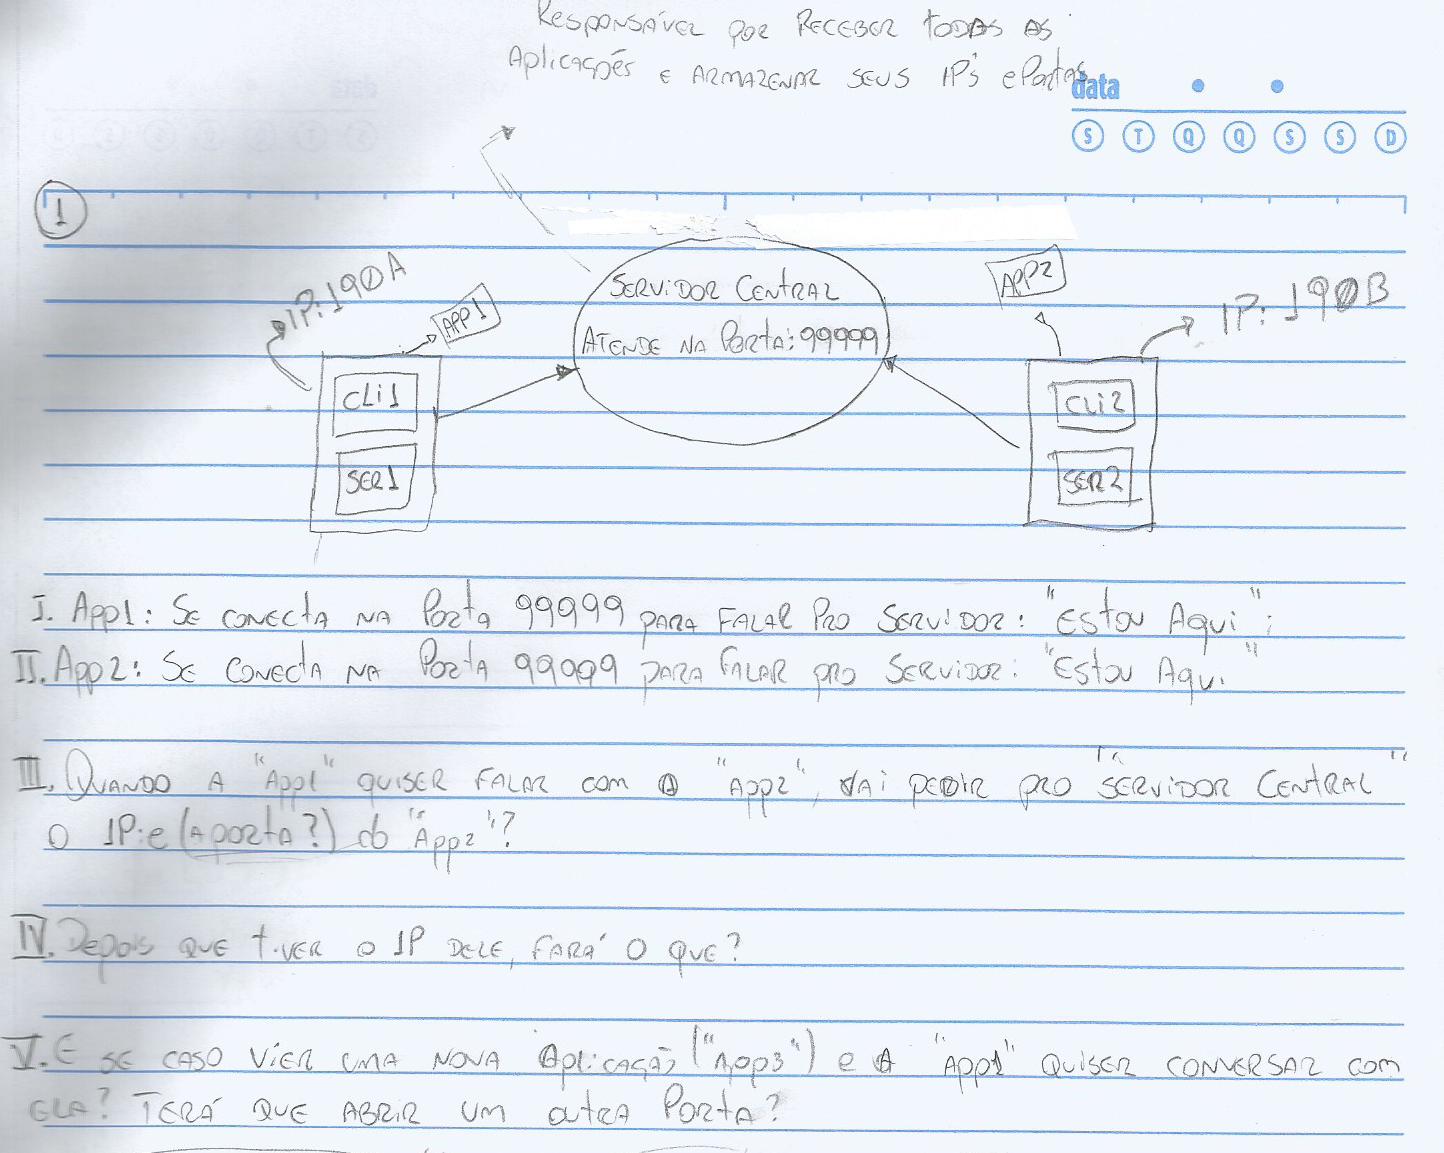 Responsável por receber todas as
Aplicações e armazenar seus IPs e Portas
data
S T Q Q S S D
1
Servidor Central
Atende na Porta: 99999
IP: 190A
APP1
CLi1
SER1
APP2
IP: 190B
CLi2
SER2
I. App1: Se conecta na Porta 99999 para falar pro servidor: "Estou Aqui";
II. App2: Se conecta na Porta 99999 para falar pro servidor: "Estou Aqui"
III. Quando a "App1" quiser falar com a "App2", vai pedir pro "Servidor Central"
o IP: e (a porta?) do "App2"?
IV. Depois que tiver o IP dele, fará o que?
V. E se caso vier uma nova aplicação ("App3") e a "App1" quiser conversar com
ela? Terá que abrir um outra Porta?